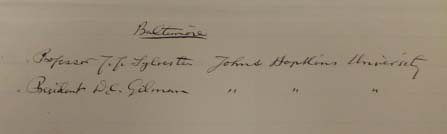 Baltimore
Professor J. J. Sylvester Johns Hopkins University
President D. C. Gilman " " "